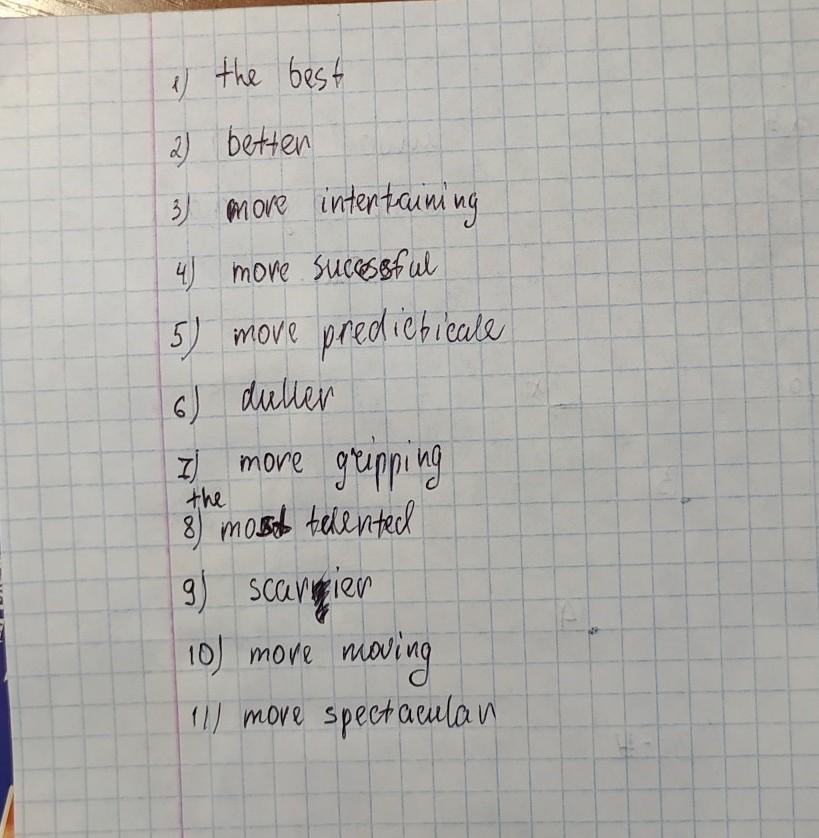 1) the best
2) better
3) more intertaining
4) more sucessful
5) more predicticale
6) duller
7) more gripping
the
8) most telented
9) scarier
10) more moving
11) more spectacular